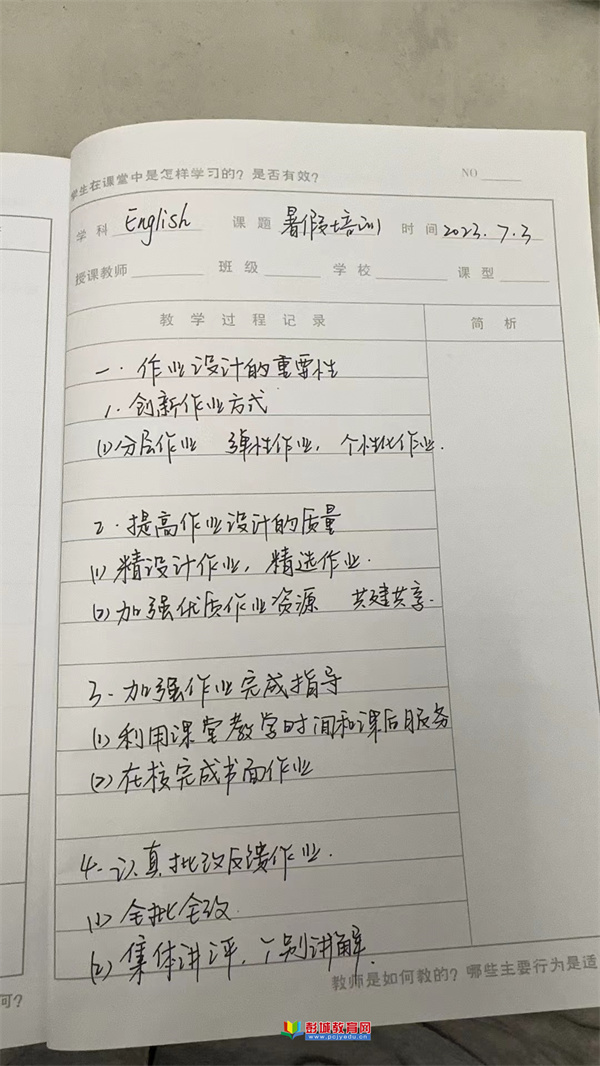 学生在课堂中是怎样学习的？是否有效？ NO
学科 English 课题 暑假培训 时间 2023.7.3
授课教师 班级 学校 课型
教学过程记录 简析
一.作业设计的重要性
1.创新作业方式
(1)分层作业 弹性作业，个性化作业.
2.提高作业设计的质量
(1)精设计作业，精选作业.
(2)加强优质作业资源 共建共享.
3.加强作业完成指导
(1)利用课堂教学时间和课后服务
(2)在校完成书面作业
4.认真批改反馈作业.
(1)全批全改.
(2)集体讲评，个别讲解.
教师是如何教的？哪些主要行为是适
可？
彭城教育网
www.pcjyedu.cn